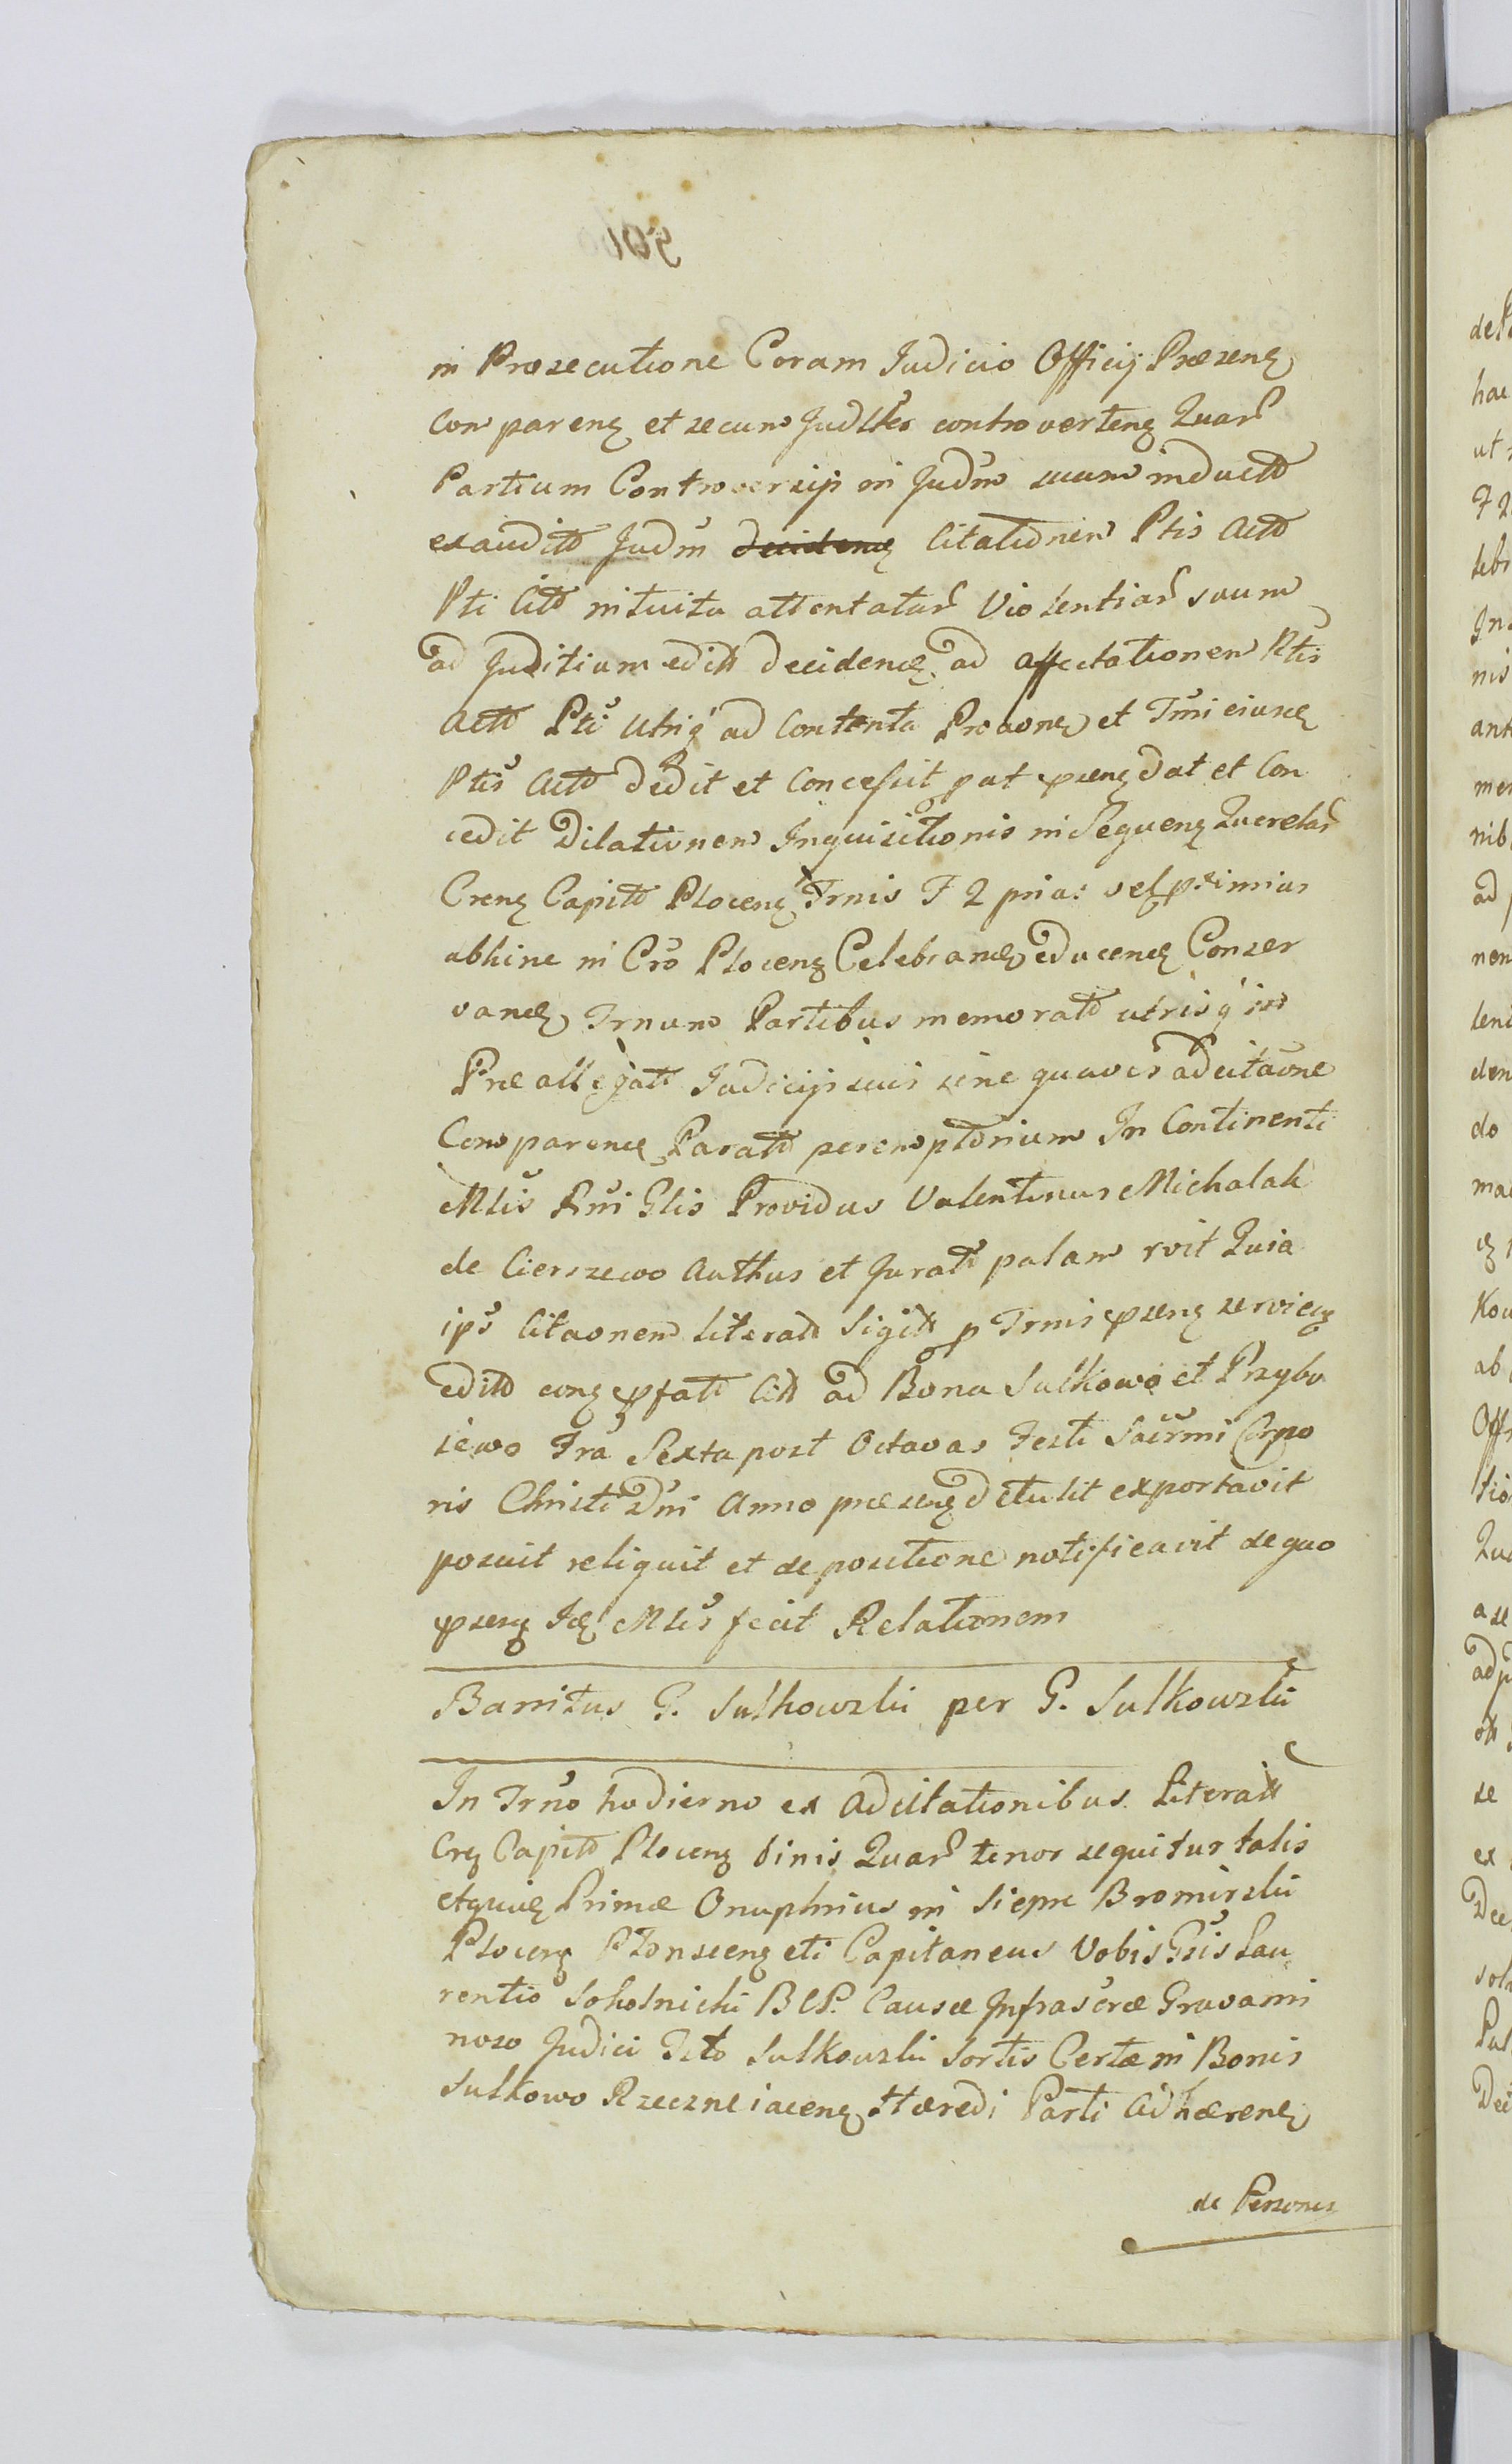 in Prosecutione Coram Judicio Officij Præsenz
Comparenz et secum Judltèr controvertenz Quar
Partium Controversijs in Judm suum induct
exaudit Judm Citationem Ptis Act
Pti Cit intuitu attentatar Violentiar suum
ad Juditium edit decidenđ ad affectationem Ptis
Act Pti Utriq ad Contenta Proaonē et Tmi eiusđ
Ptis Act dedit et Concessit put psenz dat et Con
cedit Dilationem Inquisitionis in Sequenz Querelar
Crenz Capit Plocenz Trnis F 2 pria: vel pximius
abhinc in Cro Plocenz Celebranđ educenđ Conser
vanđ Trnum Partibus memorat utrisq in
Præallegat Judicijs suis sine quavis adcitaone
Comparenđ Parat peremptorium In Continenti
Mlis Rni Glis Providus Valentinus Michalak
de Cierszewo Authus et Jurat palam rvit Quia
ips Citaonem literat Sigilt p Trnis psenz serviens
edit conz pfat Cit ad Bona Sulkowo et Przybo
siewo Fra Sexta post Octavas Festi Sacrmi Corpo
ris Christi Dni Anno præsenz detulit exportavit
posuit reliquit et de positione notificavit de quo
psenz Iđ Mlis fecit Relationem
Bannitus G. Sulkowski per G. Sulkowski
In Trno hodierno ex Adcitationibus Literat
Crz Capit Plocenz binis Quar tenor sequitur talis
etquiđ Primæ Onuphrius in Siepre Bromirski
Plocenz Plonscenz eti Capitaneus Vobis Gsis Lau
rentio Sokolnicki BCP. Causæ Infrascræ Gravami
noso Judici Isto Sulkowski Sortis Certæ in Bonis
Sulkowo Rzeczne iacenz Hæredi Parti Adhærenz
de Personis